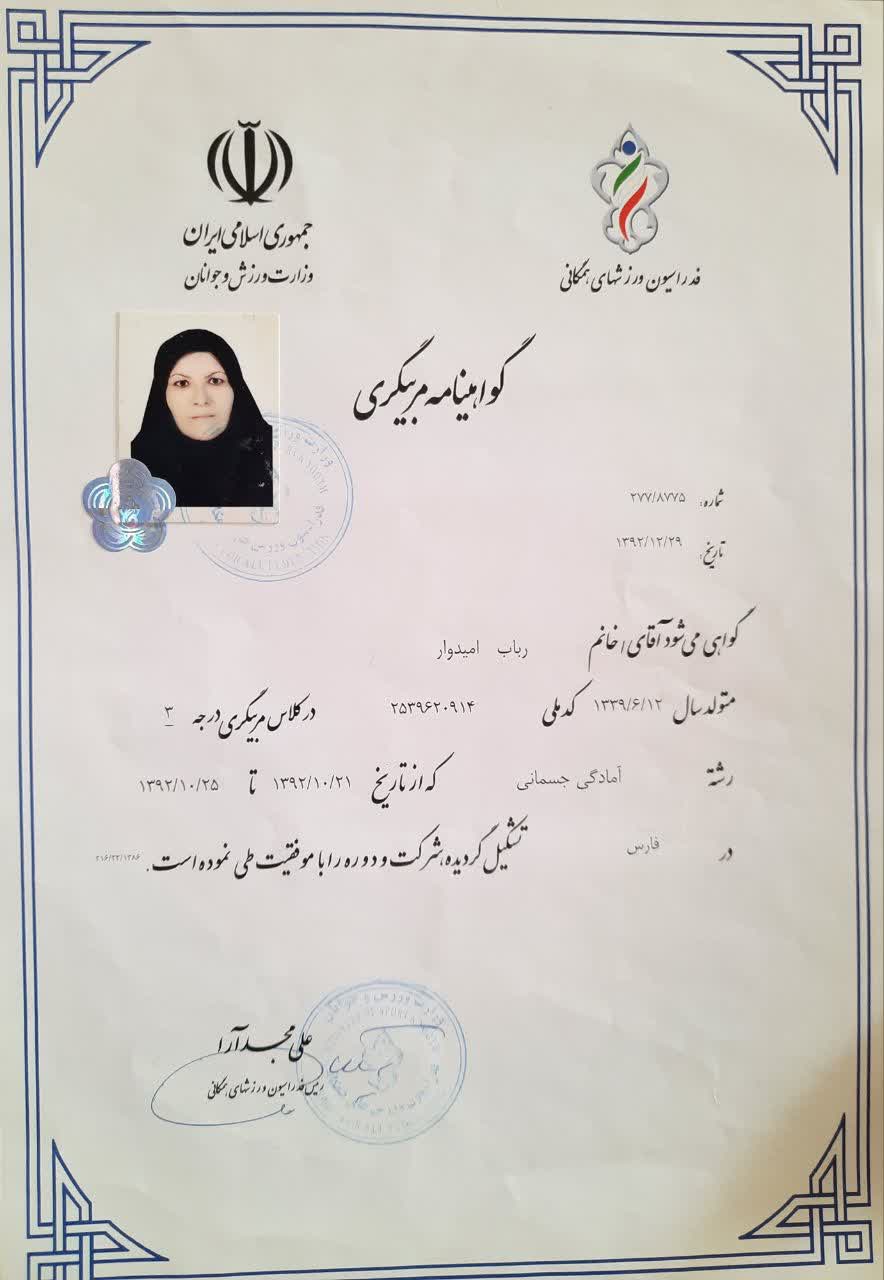 جمهوری اسلامی ایران
وزارت ورزش و جوانان
فدراسیون ورزشهای همگانی
گواهینامه مربیگری
شماره: ۲۷۷/۸۷۷۵
تاریخ: ۱۳۹۲/۱۲/۲۹
گواهی می شود آقای / خانم رباب امیدوار
متولد سال ۱۳۳۹/۶/۱۲ کد ملی ۲۵۳۹۶۲۰۹۱۴ در کلاس مربیگری درجه ۳
رشته آمادگی جسمانی که از تاریخ ۱۳۹۲/۱۰/۲۱ تا ۱۳۹۲/۱۰/۲۵
در فارس تشکیل گردیده، شرکت و دوره را با موفقیت طی نموده است. ۲۱۶/۲۲/۱۳۸۶
علی مجدآرا
رئیس فدراسیون ورزشهای همگانی